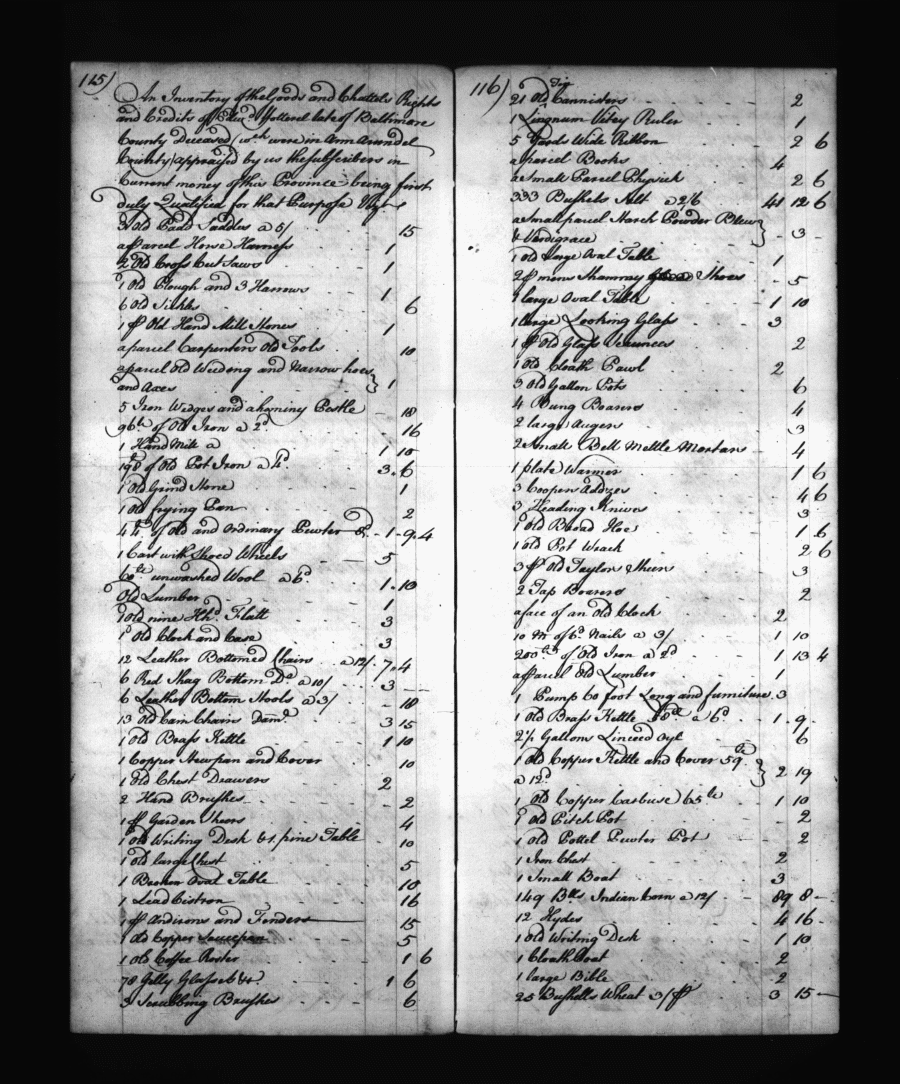 115)
An Inventory of the Goods and Chattels Rights
and Credits of Edwd. late of Baltimore
County Deceased wch. were in Ann Arundel
County appraised by us the Subscribers in
Current money of this Province being first
duly Qualified for that Purpose Vizt.
3 Old Padd Saddles a 5/ 15
a parcel Horse Harness 1
2 Old Cross Cut Saws 1
1 Old Plough and 3 Harrows 1
6 Old Sickles 6
1 pr Old Hand Mill Stones 1
a parcel Carpenters Old Tools 10
a parcel Old Weeding and Narrow hoes
and Axes 1
5 Iron Wedges and a hominy Pestle 18
96 lb of Old Iron a 2d 16
1 Hand Mill a 1 10
198 of Old Pot Iron a 4d. 3 6
1 Old Grind Stone 1
1 Old frying Pan 2
44 lb. of Old and Ordinary Pewter 1 9 4
1 Cart with Shoed Wheels 5
60 lb unwashed Wool a 6d. 1 10
Old Lumber 1
1 Old nine Hhd. Flatt 3
1 Old Clock and Case 3
12 Leather Bottomed Chairs a 12/ 7 4
6 Red Shag Bottom Do. a 10/ 3
6 Leather Bottom Stools a 3/ 18
13 Old Cain Chairs Damd. 3 15
1 Old Brass Kettle 1 10
1 Copper Stewpan and Cover 10
1 Old Chest Drawers 2
2 Hand Brushes 2
1 pr Garden Sheers 4
1 Old Writing Desk & 1 pine Table 10
1 Old large Chest 5
1 Broken Oval Table 10
1 Lead Cistron 16
1 pr Andirons and Fenders 15
1 Old Copper Saucepan 5
1 Old Coffee Roster 1 6
78 Gelly Glasses &c. 1 6
3 Scrubbing Brushes 6
116)
Tin
21 Old Cannisters 2
1 Lingnum Vitey Ruler 1
5 Yards Wide Ribbon 2 6
a parcel Books 4
a Small Parcel Physick 2 6
333 Bushels Salt a 2/6 41 12 6
a Small parcel Starch Powder Blew
& Verdigrace 3
1 Old large Oval Table 1
2 pr mens Shammy Shoes 5
1 large Oval Table 1 10
1 large Looking Glass 3
1 pr Old Glass Scounces 2
1 Old Cloath Pawl 2
3 Old Gallon Pots 6
4 Bung Boarers 4
2 large Augers 3
2 Small Bell Mettle Mortars 4
1 plate Warmer 1 6
3 Coopers Addzes 4 6
3 Heading Knives 3
1 Old Broad Hoe 1 6
1 Old Pot Wrack 2 6
3 pr Old Taylors Sheers 3
2 Tap Boarers 2
a face of an Old Clock 2
10 M of 6d. Nails a 3/ 1 10
200 lb of Old Iron a 2d 1 13 4
a parcel Old Lumber 1
1 Pump 60 foot Long and furniture 3
1 Old Brass Kettle 58 lb a 6d. 1 9
2 1/2 Gallons Linceed Oyl 6
1 Old Copper Kettle and Cover 59 lb
a 12d. 2 19
1 Old Copper Carbuse 65 lb 1 10
1 Old Pitch Pot 2
1 Old Pottel Pewter Pot 2
1 Iron Chest 2
1 Small Boat 3
149 Blls Indian Corn a 12/ 89 8
12 Hydes 4 16
1 Old Writing Desk 1 10
1 Cloath Coat 2
1 large Bible 2
25 Bushells Wheat 3/ pr 3 15